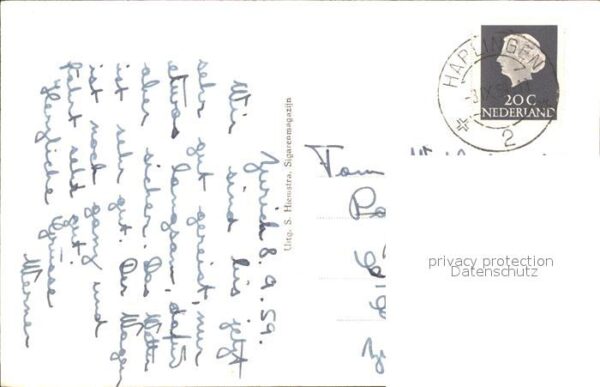 Zürich 8.9.59.
Wir sind bis jetzt
sehr gut gereist nur
etwas langsam, dafür
aber sicher. Das Wetter
ist sehr gut. Der Wagen
ist noch ganz und
fährt sehr gut.
Herzliche Grüsse
Werner
Uitg. S. Hiemstra, Sigarenmagazijn
Fam
HARLINGEN
2
20 C
NEDERLAND
privacy protection
Datenschutz